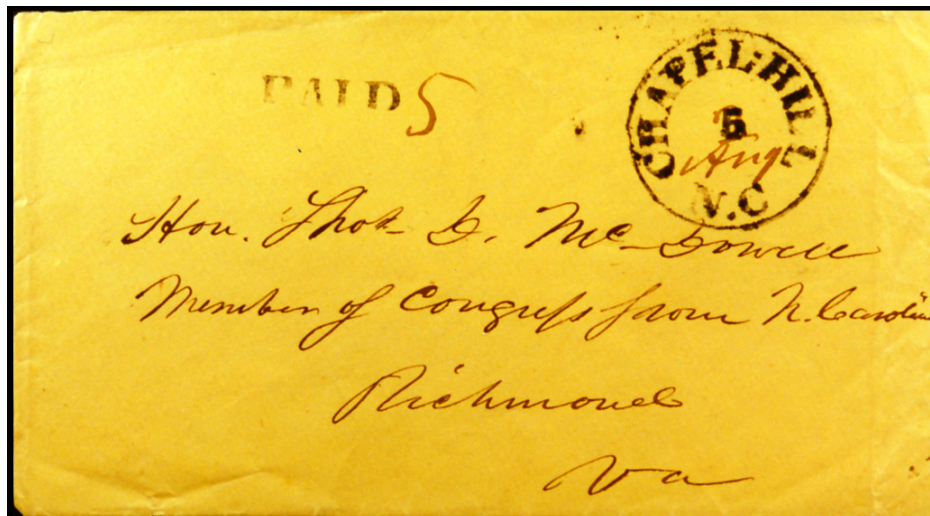 PAID 5
CHAPEL-HILL
5
Aug
N.C
Hon. Thos. D. Mc-Dowell
Member of Congress from N. Carolina
Richmond
Va